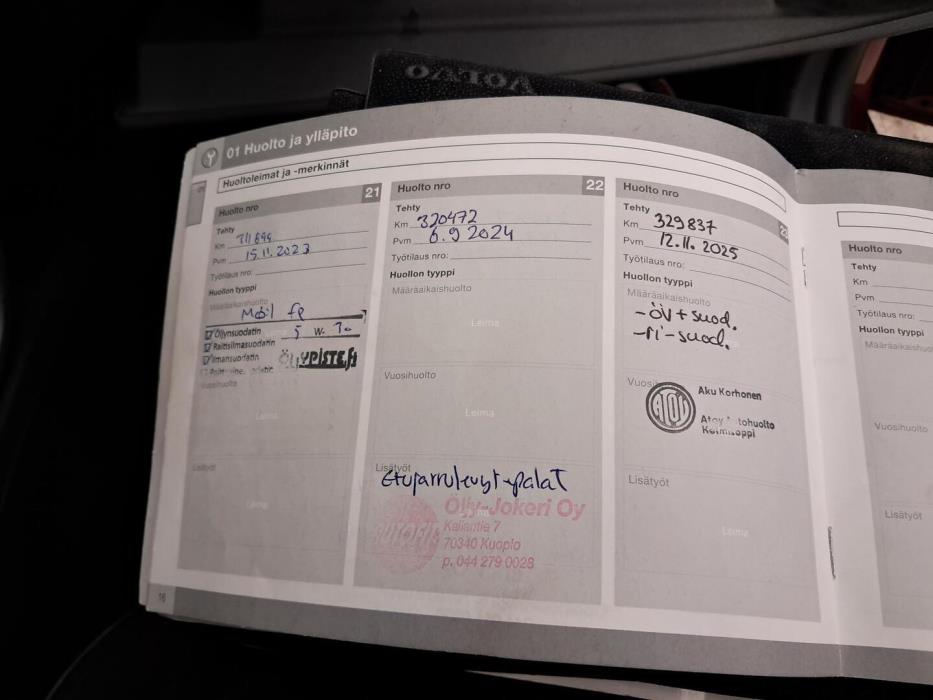 VOLVO
01 Huolto ja ylläpito
Huoltoleimat ja -merkinnät
Huolto nro 21
Tehty
Km
Pvm 15.11.2023
Työtilaus nro:
Huollon tyyppi
Määräaikaishuolto
Mobil
Öljynsuodatin 5 W. 30
Raitisilmasuodatin
Ilmansuodatin
ÖLJYPISTE.fi
Vuosihuolto
Leima
Lisätyöt
Leima
16
Huolto nro 22
Tehty
Km 320472
Pvm 6.9 2024
Työtilaus nro:
Huollon tyyppi
Määräaikaishuolto
Leima
Vuosihuolto
Leima
Lisätyöt
Etujarrulevyt+palat
Öljy-Jokeri Oy
AUTOFIT
Kallantie 7
70340 Kuopio
p. 044 279 0028
Huolto nro 23
Tehty
Km 329837
Pvm 12.11.2025
Työtilaus nro:
Huollon tyyppi
Määräaikaishuolto
-öv+suod.
-ri-suod.
Vuosi
ATOY
Aku Korhonen
Atoy Autohuolto
Kolmisoppi
Lisätyöt
Leima
Huolto nro
Tehty
Km
Pvm
Työtilaus nro:
Huollon tyyppi
Vuosihuolto
Lisätyöt